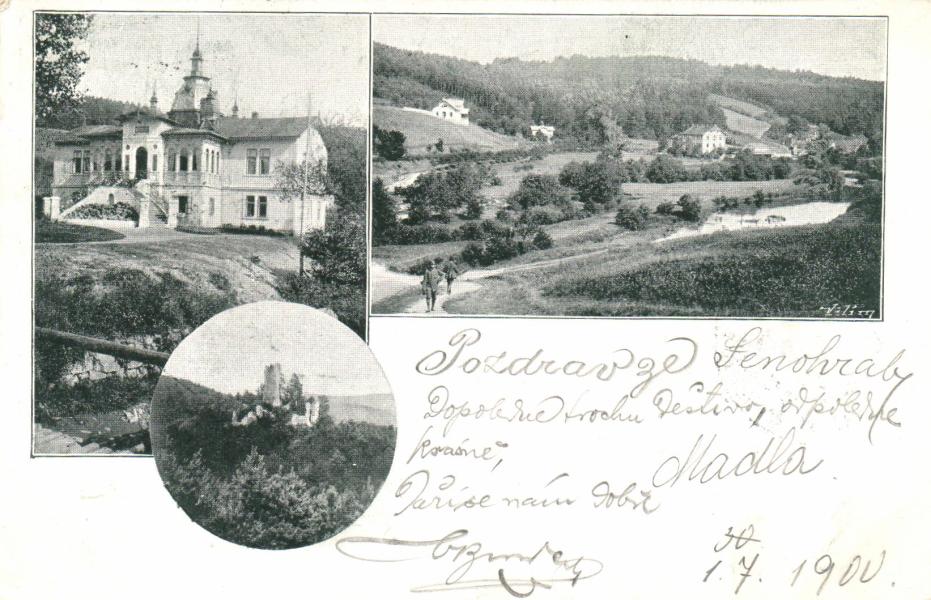 Vilím
Pozdrav ze Senohrab
Dopoledne trochu deštivo, odpoledne
krásně,
Madla
Daří se nám dobře
30
1. 7. 1900.